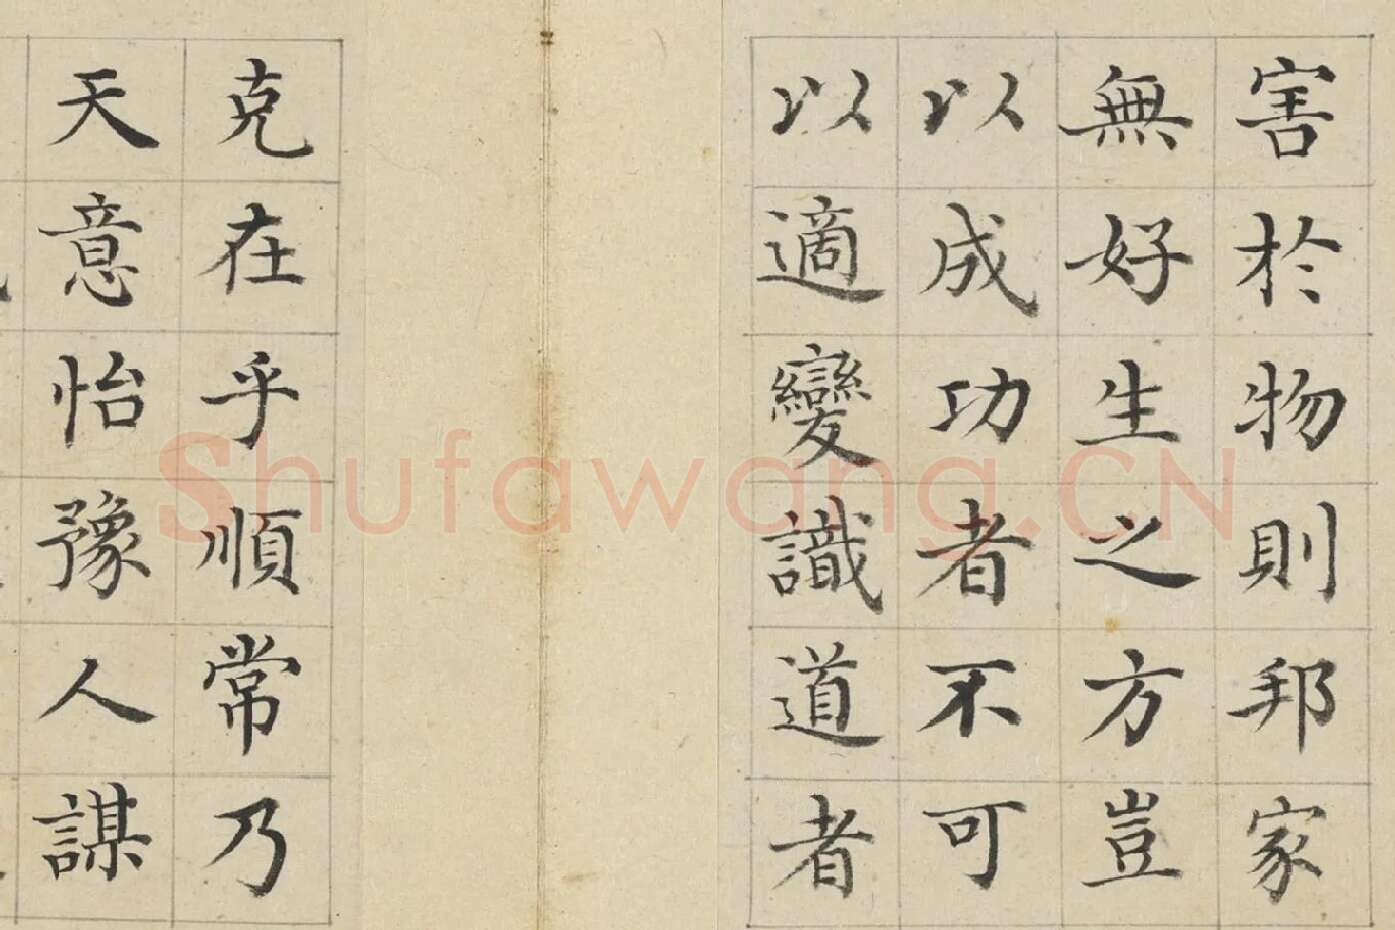 害於物則邦家
無好生之方豈
以成功者不可
以適變識道者
克在乎順常乃
天意怡豫人謀
Shufawang.CN